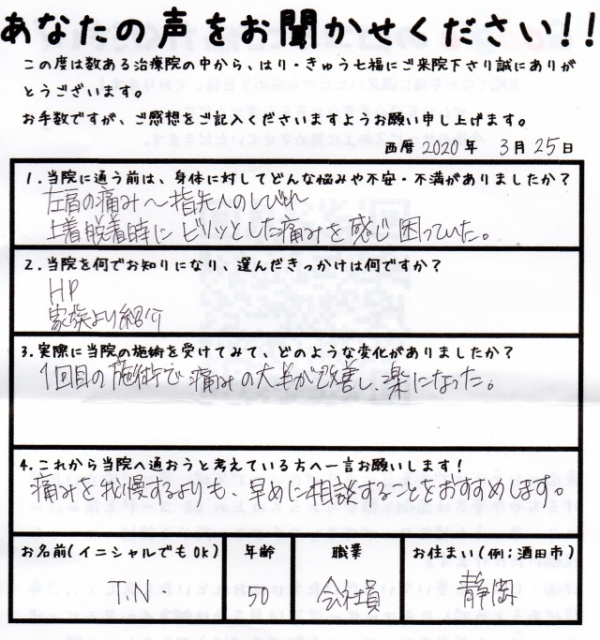 あなたの声をお聞かせください!!
この度は数ある治療院の中から、はり・きゅう七福にご来院下さり誠にありが
とうございます。
お手数ですが、ご感想をご記入くださいますようお願い申し上げます。
西暦 2020年 3月25日
1.当院に通う前は、身体に対してどんな悩みや不安・不満がありましたか?
左肩の痛み〜指先へのしびれ
上着脱着時にピリッとした痛みを感じ困っていた。
2.当院を何でお知りになり、選んだきっかけは何ですか?
HP
家族より紹介
3.実際に当院の施術を受けてみて、どのような変化がありましたか?
1回目の施術で痛みの大半が改善し、楽になった。
4.これから当院へ通おうと考えている方へ一言お願いします!
痛みを我慢するよりも、早めに相談することをおすすめします。
お名前(イニシャルでもOK) 年齢 職業 お住まい(例:酒田市)
T.N. 50 会社員 静岡